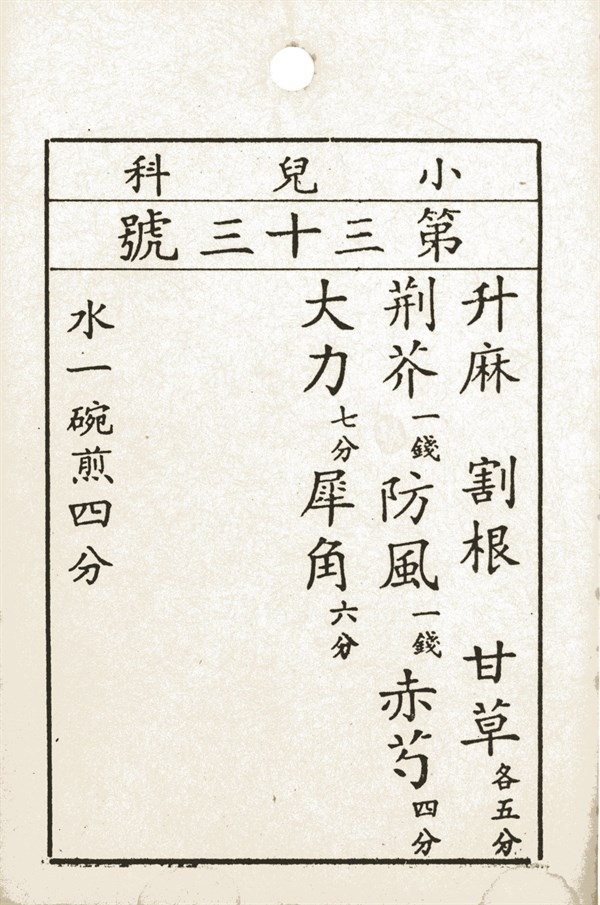 小兒科
第三十三號
升麻 割根 甘草各五分
荆芥一錢防風一錢赤芍四分
大力七分犀角六分
水一碗煎四分